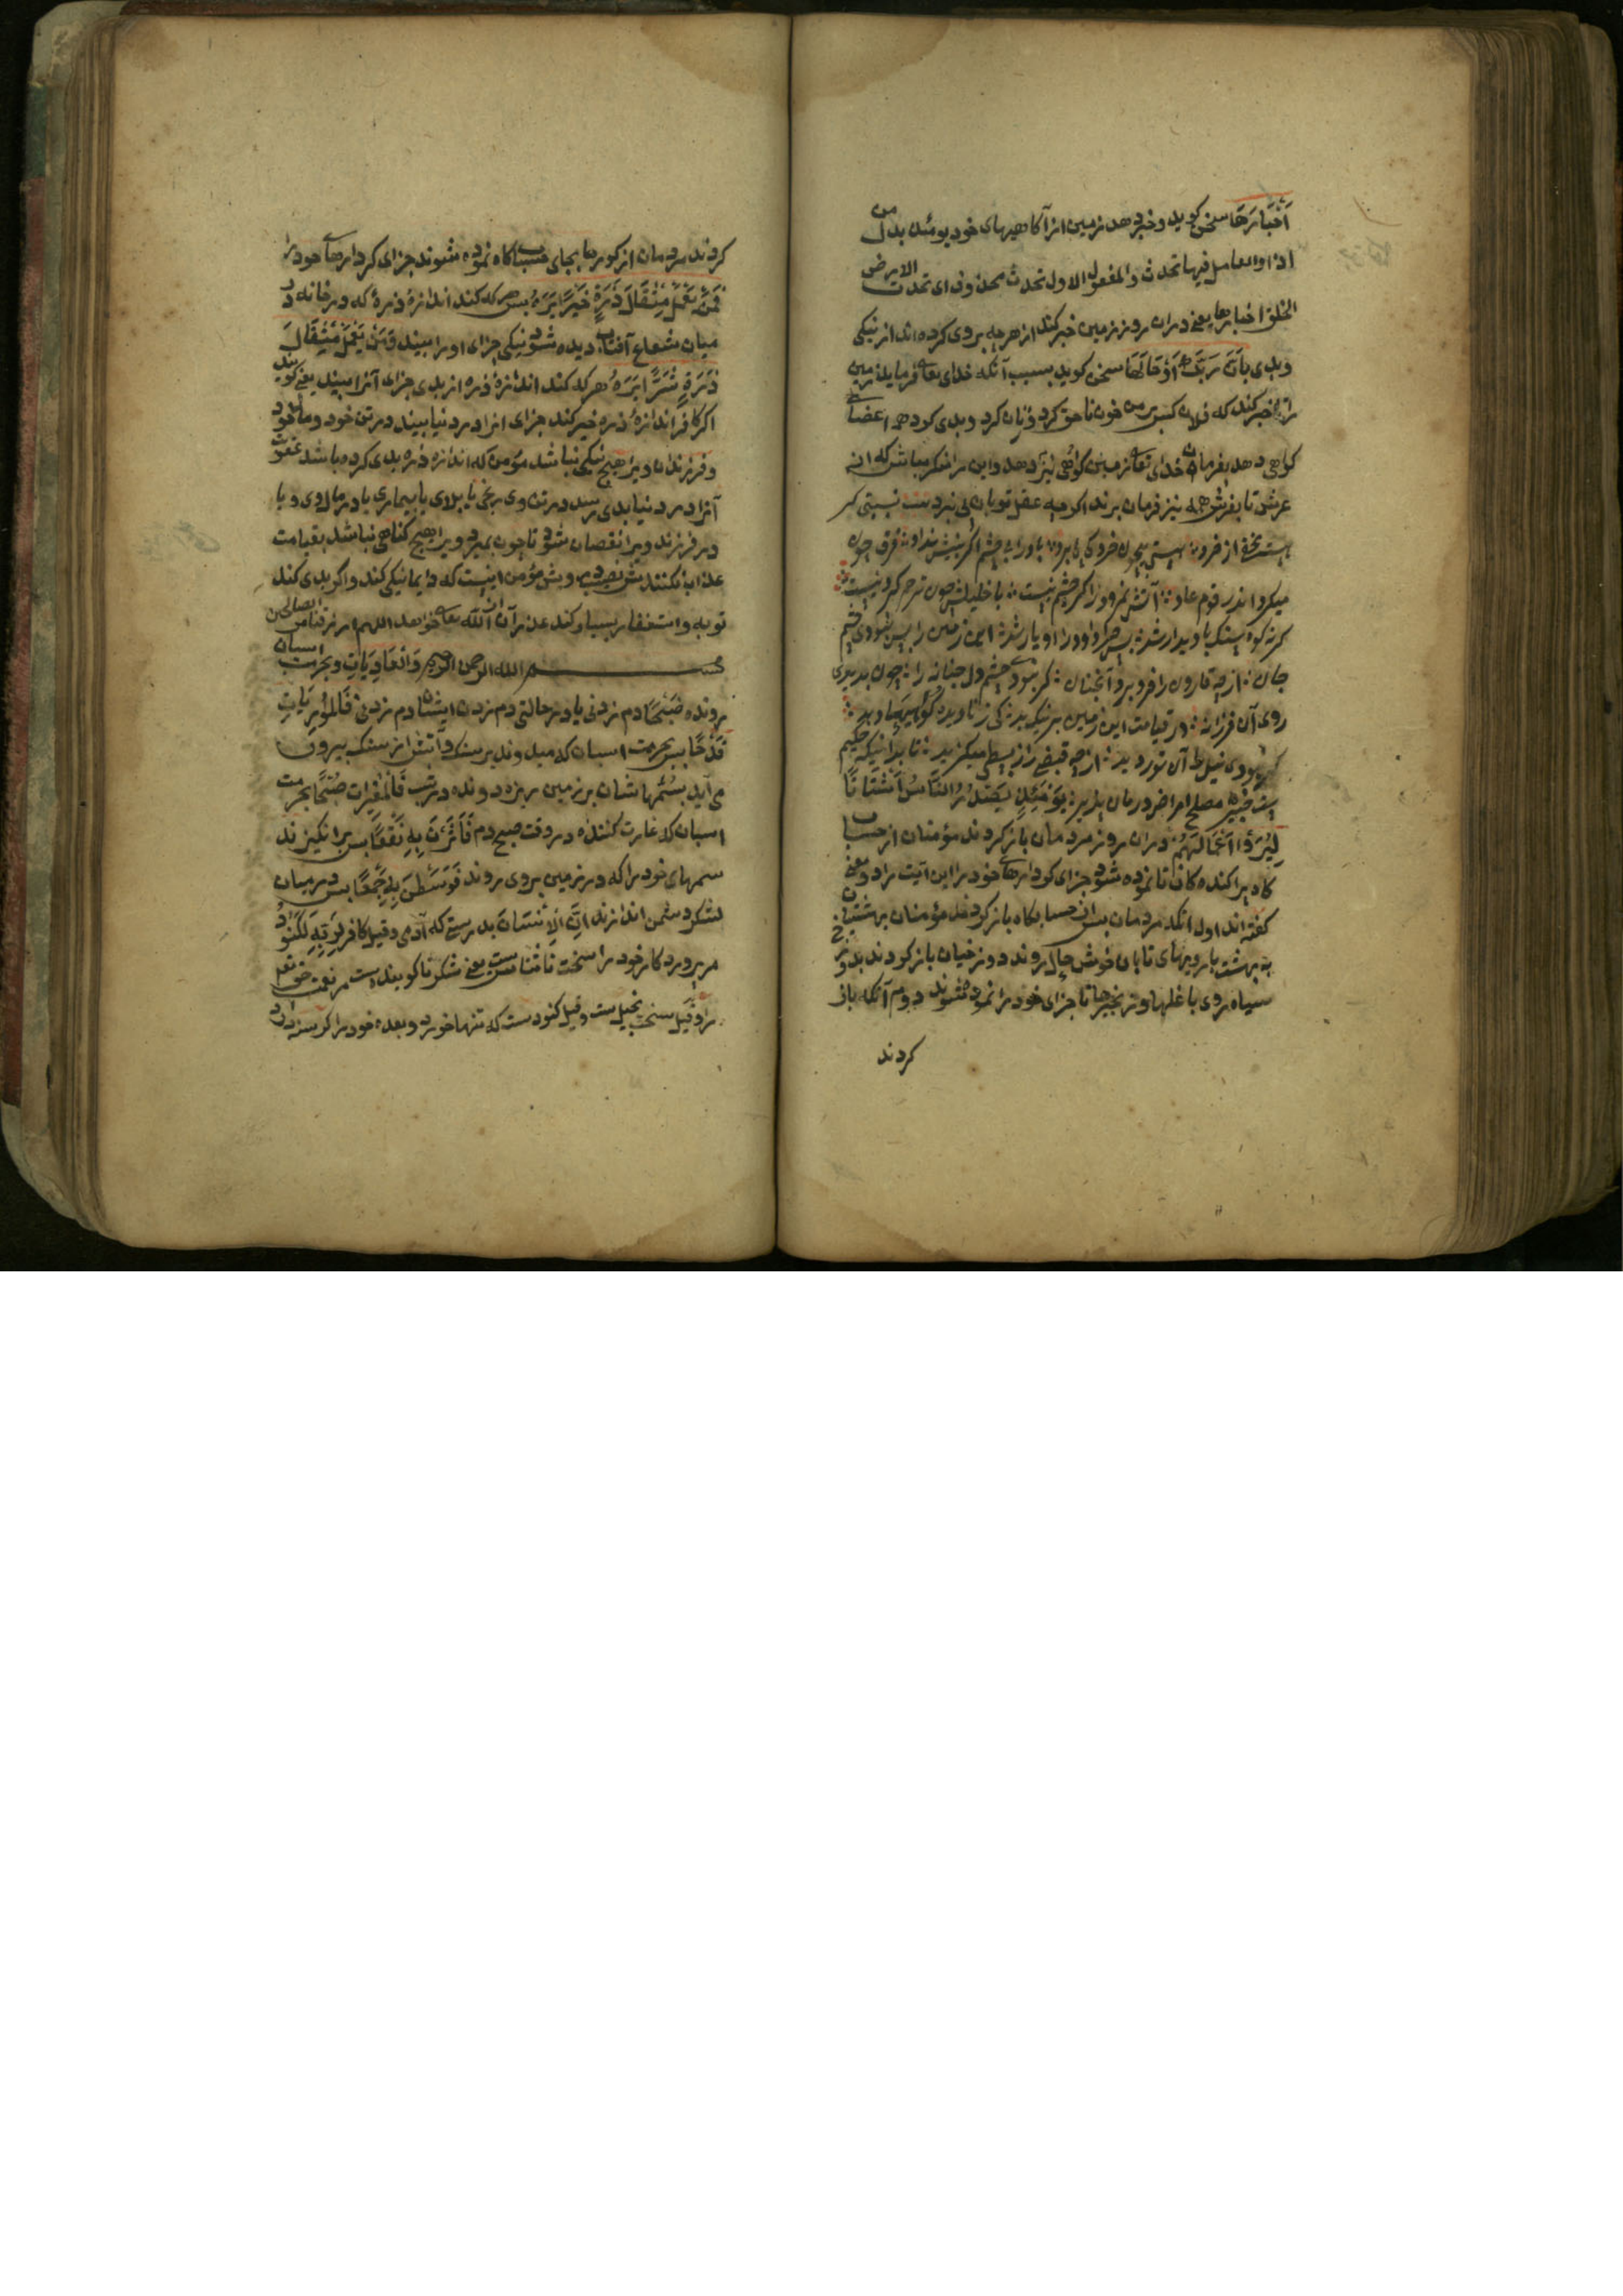 اَخْبَارَهَا سخن کوید و خبر دهد زمین از آکاهیهای خود یومئذ بدل من
اذا والعامل فیها تحدث والمفعول الاول تحدث محذوف ای تحدث الارض
الخلق اخبارها یعنی دران روز زمین خبر کند از هرچه بروی کرده اند از نیکی
و بدی بِاَنَّ رَبَّكَ اَوْحٰی لَهَا سخن کوید بسبب آنکه خدای تعالی فرماید زمین
را تا خبر کند که فلان کس بر من خون ناحق کرد و زنان کرد و بدی کرد همه اعضای
کواهی دهد بفرمان خدای تعالی زمین کواهی نیز دهد و این را منکر مباش که از
عرش تا بفرش همه نیز فرمان برند اکرچه عقل تو بآن پی نبرد
میکرد اندر قوم عاد آتش نمرود را کر چشم نیست با خلیلش چون ترحم کردنیست
کرنه کوه سنک با دیدار شد پس چرا داود را او یار شد این زمین را کر نبودی چشم
جان از چه قارون را فرو برد آنچنان کر نبودی چشم دل حنانه را چون بدیدی
روی آن فرزانه در قیامت این زمین بر نیک و بد کی ز نادیده کواهیها دهد
یَوْمَئِذٍ یَصْدُرُ النَّاسُ اَشْتَاتًا
لِیُرَوْا اَعْمَالَهُمْ دران روز مردمان باز کردند مؤمنان از حساب
کاه پراکنده کان تا نموده شود جزای کردارهای خود را این آیت را دو معنی
کفته اند اول آنکه مردمان پس از حسابکاه باز کردند مؤمنان بهشتیان
به بهشت با رویهای تابان خوش حال روند و دوزخیان باز کردند بدوزخ
سیاه روی با غلها و زنجیرها تا جزای خود را نموده شوند دوم آنکه باز
کردند
کردند مردمان از کورها بجای حسابکاه نموده شوند جزای کردارهای خود را
فَمَنْ یَعْمَلْ مِثْقَالَ ذَرَّةٍ خَیْرًا یَرَهُ پس هر که کند اندازۀ ذرۀ که در خانه در
میان شعاع آفتاب دیده شود نیکی جزای او را بیند وَمَنْ یَعْمَلْ مِثْقَالَ
ذَرَّةٍ شَرًّا یَرَهُ هر که کند اندازۀ ذره از بدی جزای آنرا بیند یعنی کویند
اکر کافر اندازۀ ذره خیر کند جزای انرا در دنیا بیند در تن خود و مال خود
و فرزندان و یرا هیچ نیکی نباشد مؤمن که اندازه ذره بدی کرده باشد عقوبت
آنرا در دنیا بدی رسد در تن وی رنجی یا بلای یا بیماری یا در مال وی و یا
در فرزند و یرا نقصان شود تا چون بمیرد و یرا هیچ کناهی نباشد بقیامت
عذاب نکنندش و مؤمن اینست که دایما نیکی کند و اکر بدی کند
توبه و استغفار بسیار کند عذر آن از الله تعالی خواهد اللهم ارزقنا من الصالحین
بسم الله الرحمن الرحیم وَالْعَادِیَاتِ و بحرمت اسبان
رونده ضَبْحًا دم زدنی یا در حالتی دم زدن ایشان دم زدنی فَالْمُوْرِیَاتِ
قَدْحًا پس بحرمت اسبان که میدوند بر سنک و آتش از سنک بیرون
می آید بسمهاشان بر زمین ریزه دونده در شب فَالْمُغِیْرَاتِ صُبْحًا بحرمت
اسبان که غارت کننده در وقت صبح دم فَاَثَرْنَ بِهِ نَقْعًا پس برانکیزند
سمهای خود را که در زمین بروی روند فَوَسَطْنَ بِهِ جَمْعًا پس در میان
لشکر دشمن اندازند اِنَّ الْاِنْسَانَ بدرستی که آدمی و قیل کافر لِرَبِّهِ لَكَنُوْدٌ
مر پروردکار خود را سخت ناشناس است یعنی شکر ناکوینده است مر نعمت حق تعالی
را و قیل سخت بخیل ست و قیل کنود ست که تنها خورد و بعده خود را کرسنه دارد